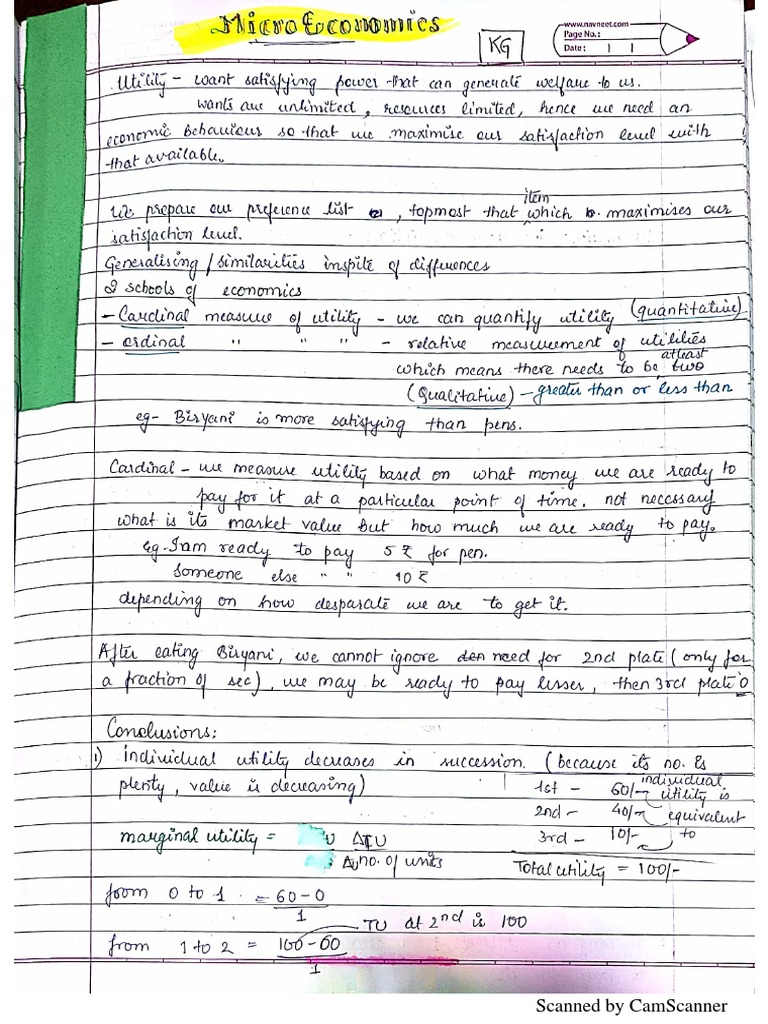 Micro Economics
KG
www.navneet.com
Page No.:
Date: | |
Utility - want satisfying power that can generate welfare to us.
wants are unlimited, resources limited, hence we need an
economic behaviour so that we maximise our satisfaction level with
that available.
item
We prepare our preference list, topmost that which maximises our
satisfaction level.
Generalising / similarities inspite of differences
2 schools of economics
- Cardinal measure of utility - we can quantify utility (quantitative)
- ordinal " " " - relative measurement of utilities
atleast
which means there needs to be two
(Qualitative) - greater than or less than
eg- Biryani is more satisfying than pens.
Cardinal - we measure utility based on what money we are ready to
pay for it at a particular point of time. not necessary
what is its market value but how much we are ready to pay.
eg. I am ready to pay 5 ₹ for pen.
Someone else " " 10 ₹
depending on how desparate we are to get it.
After eating Biryani, we cannot ignore need for 2nd plate (only for
a fraction of sec), we may be ready to pay lesser, then 3rd plate 0
Conclusions:
1) individual utility decreases in succession. (because its no. is
plenty, value is decreasing)
1st - 60/- individual
utility is
2nd - 40/- equivalent
3rd - 10/- to
Total utility = 100/-
marginal utility = ΔTU
Δ no. of units
from 0 to 1 = 60-0
1
TU at 2nd is 100
from 1 to 2 = 100-60
1
Scanned by CamScanner